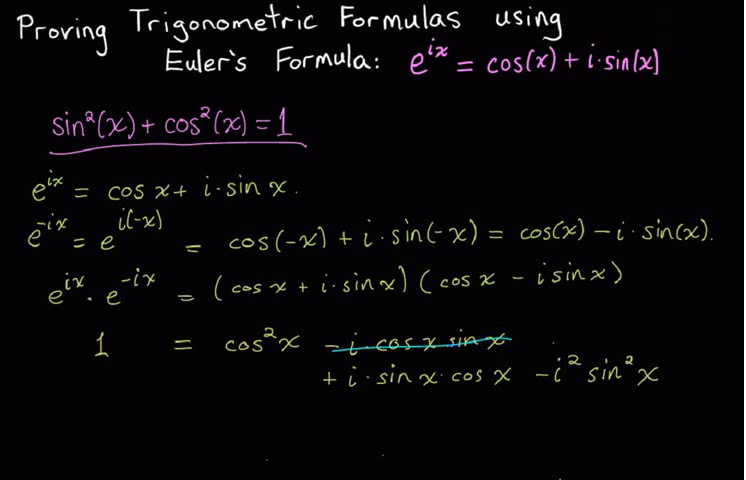 Proving Trigonometric Formulas using
Euler's Formula: e^{ix} = cos(x) + i·sin(x)
sin²(x) + cos²(x) = 1
e^{ix} = cos x + i·sin x.
e^{-ix} = e^{i(-x)} = cos(-x) + i·sin(-x) = cos(x) - i·sin(x).
e^{ix}·e^{-ix} = (cos x + i·sin x)(cos x - i sin x)
1 = cos²x - i·cos x sin x
+ i·sin x·cos x - i² sin²x